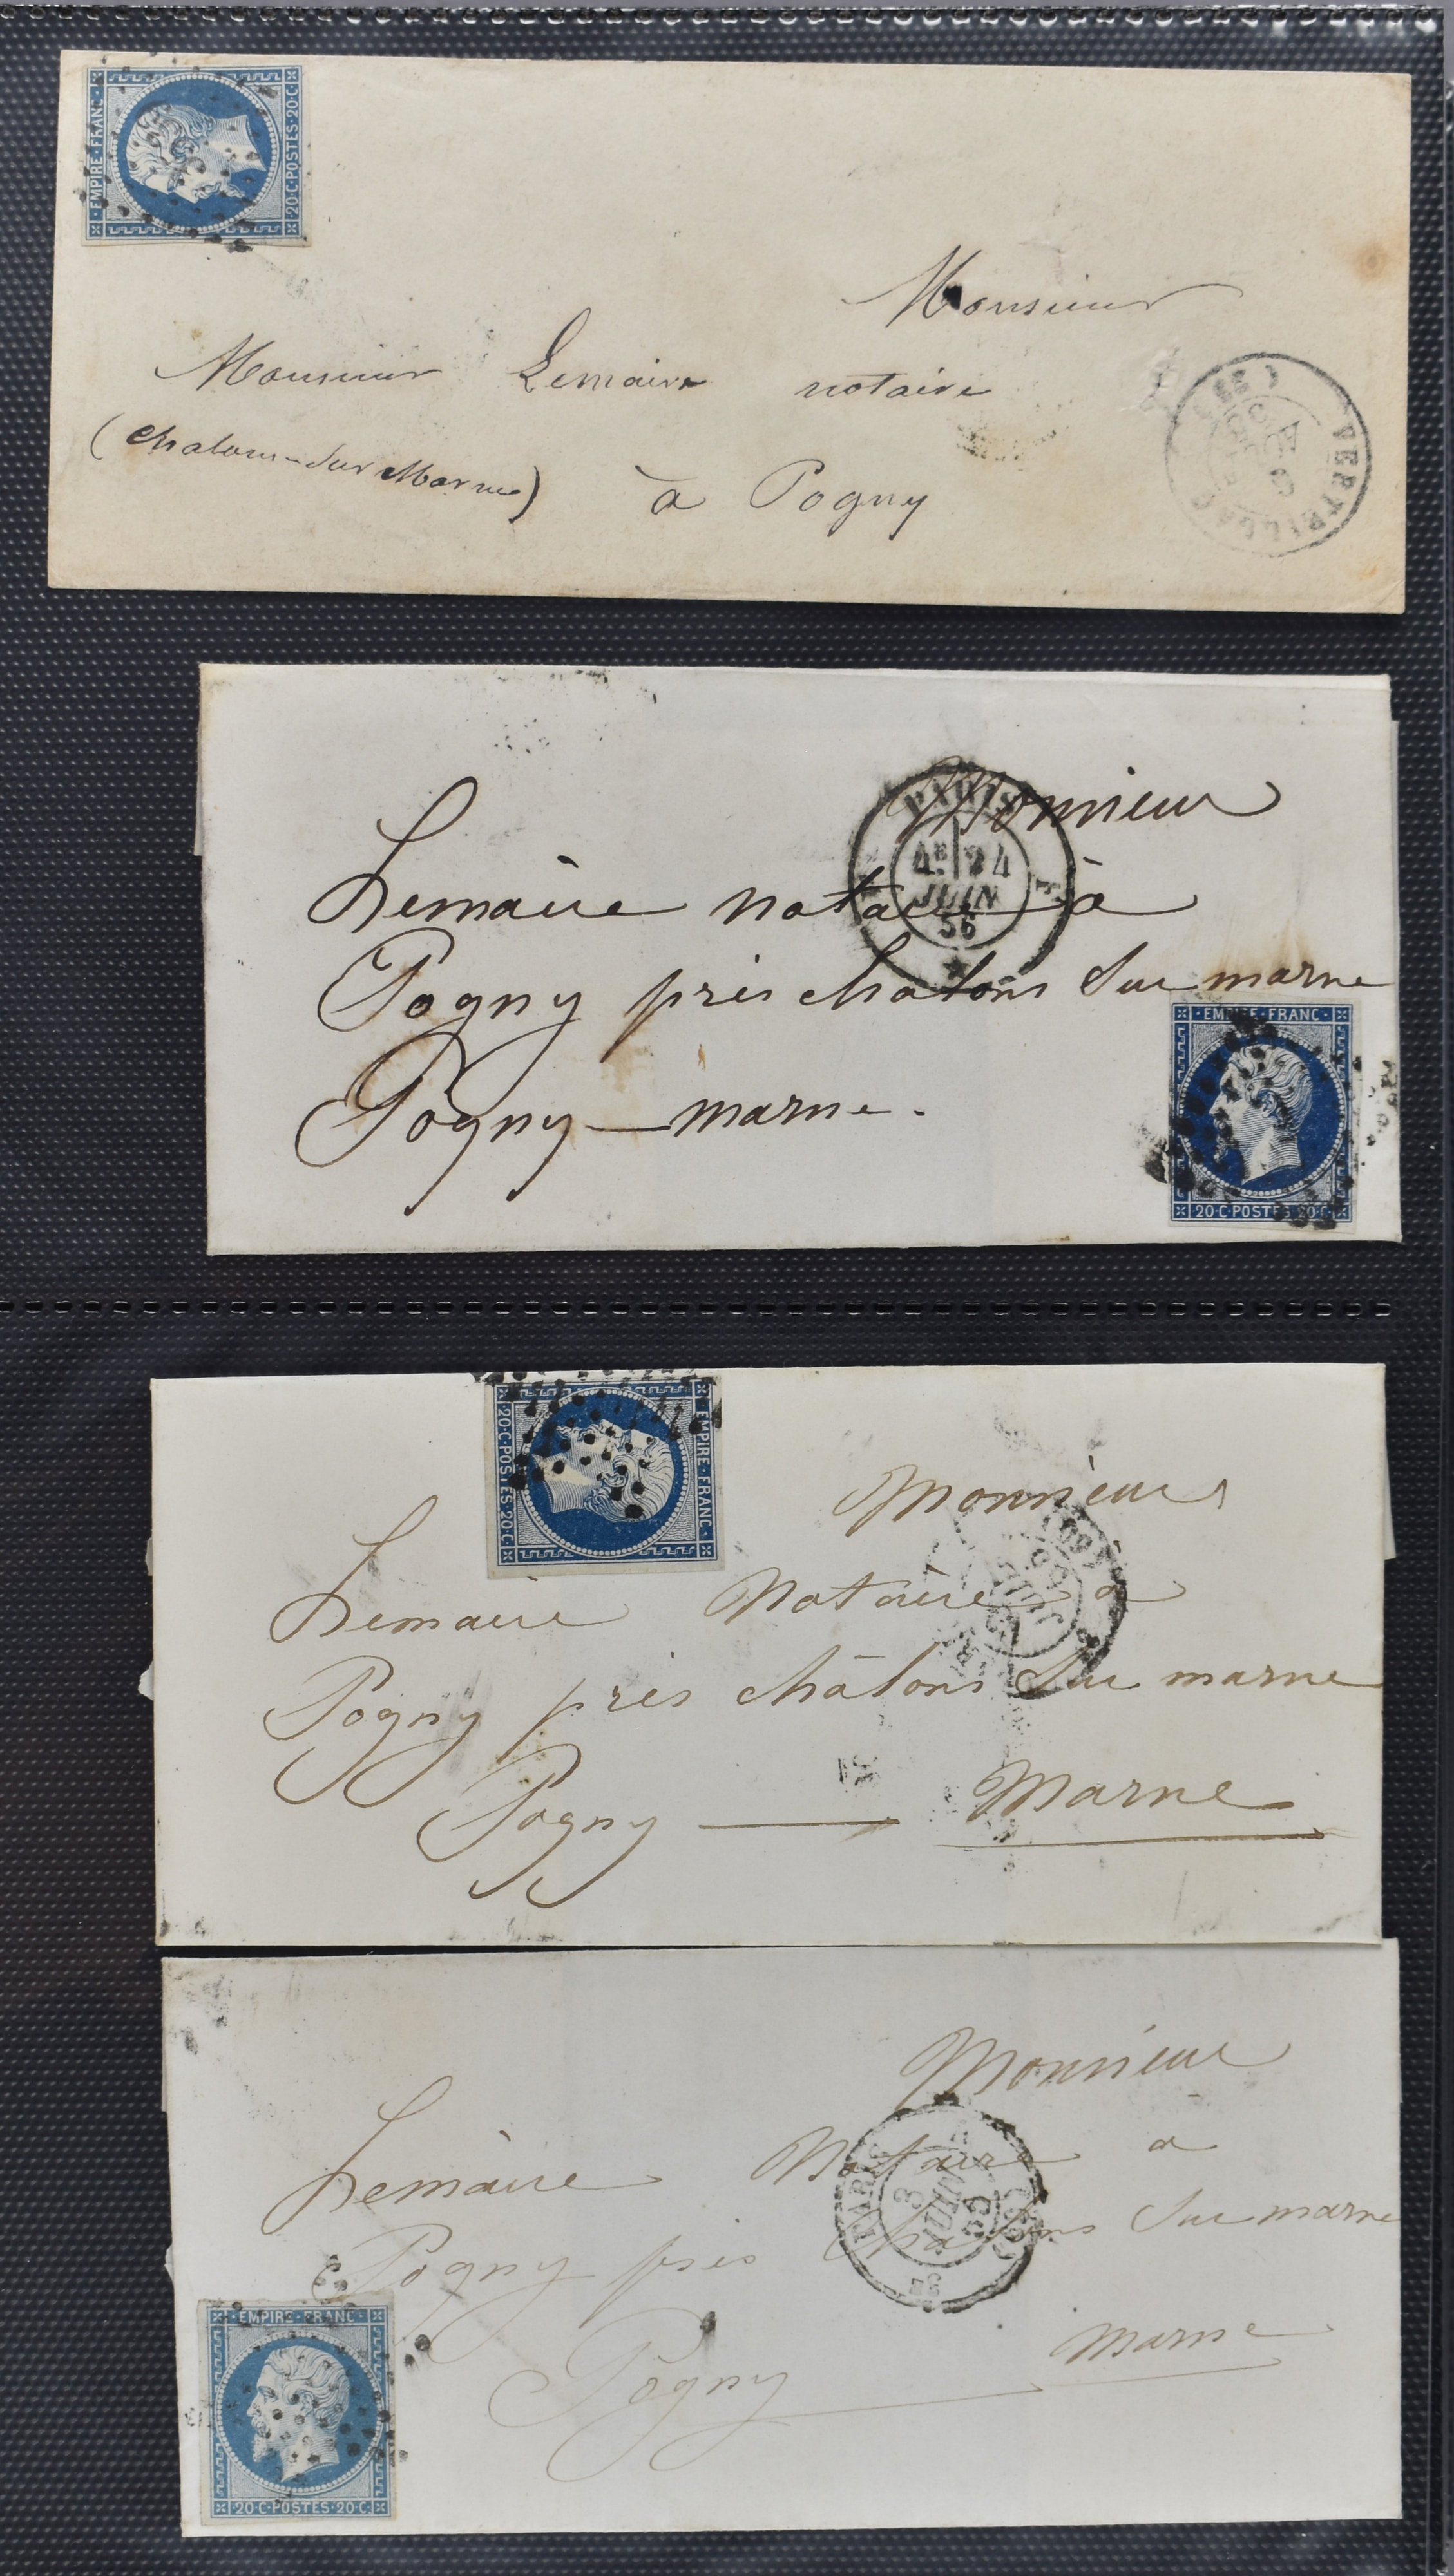 EMPIRE · FRANC ·
20 · C · POSTES · 20 · C ·
Monsieur
Monsieur Lemaire notaire
(Chalons-sur Marne)
à Pogny
VERTEILLAC
Monsieur
PARIS
4E 24
JUIN
56
Lemaire notaire à
Pogny près châlons Sur marne
EMPIRE · FRANC ·
Pogny — marne.
20 · C · POSTES · 20 · C ·
EMPIRE · FRANC ·
20 · C · POSTES · 20 · C ·
Monsieur
Lemaire Notaire à
Pogny près châlons Sur marne
Pogny — Marne
Monsieur
Lemaire Notaire à
PARIS
JUIN
Pogny près châlons Sur marne
EMPIRE · FRANC ·
Pogny — marne
20 · C · POSTES · 20 · C ·